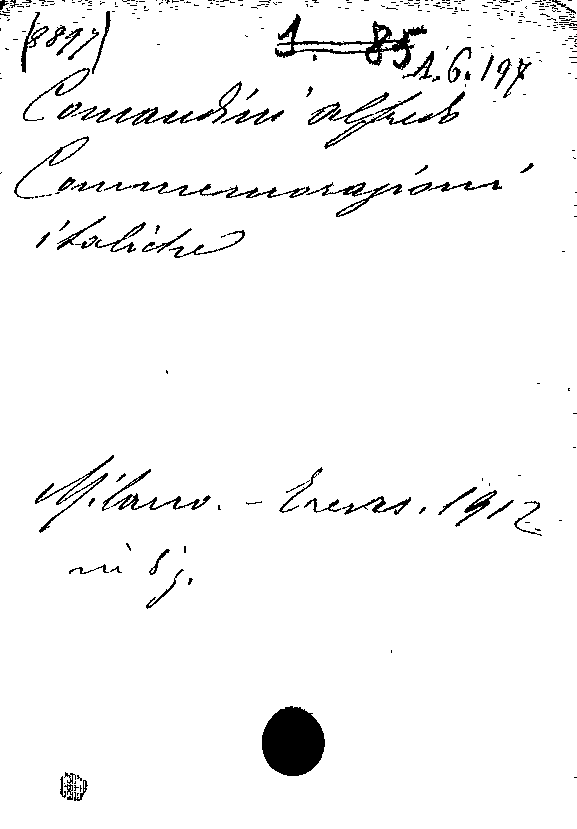 (8897)
1. 85
1.6.197
Comandini Alfredo
Commemorazioni
italiche
Milano. - Treves. 1912
in 8 g.